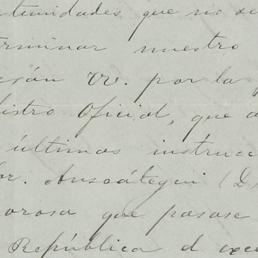 tunidades que no se
terminar nuestro
ción VV. por la
istro Oficial, que
últimas instrucc
or. Ansoátegui (D
orosa que pasase
República